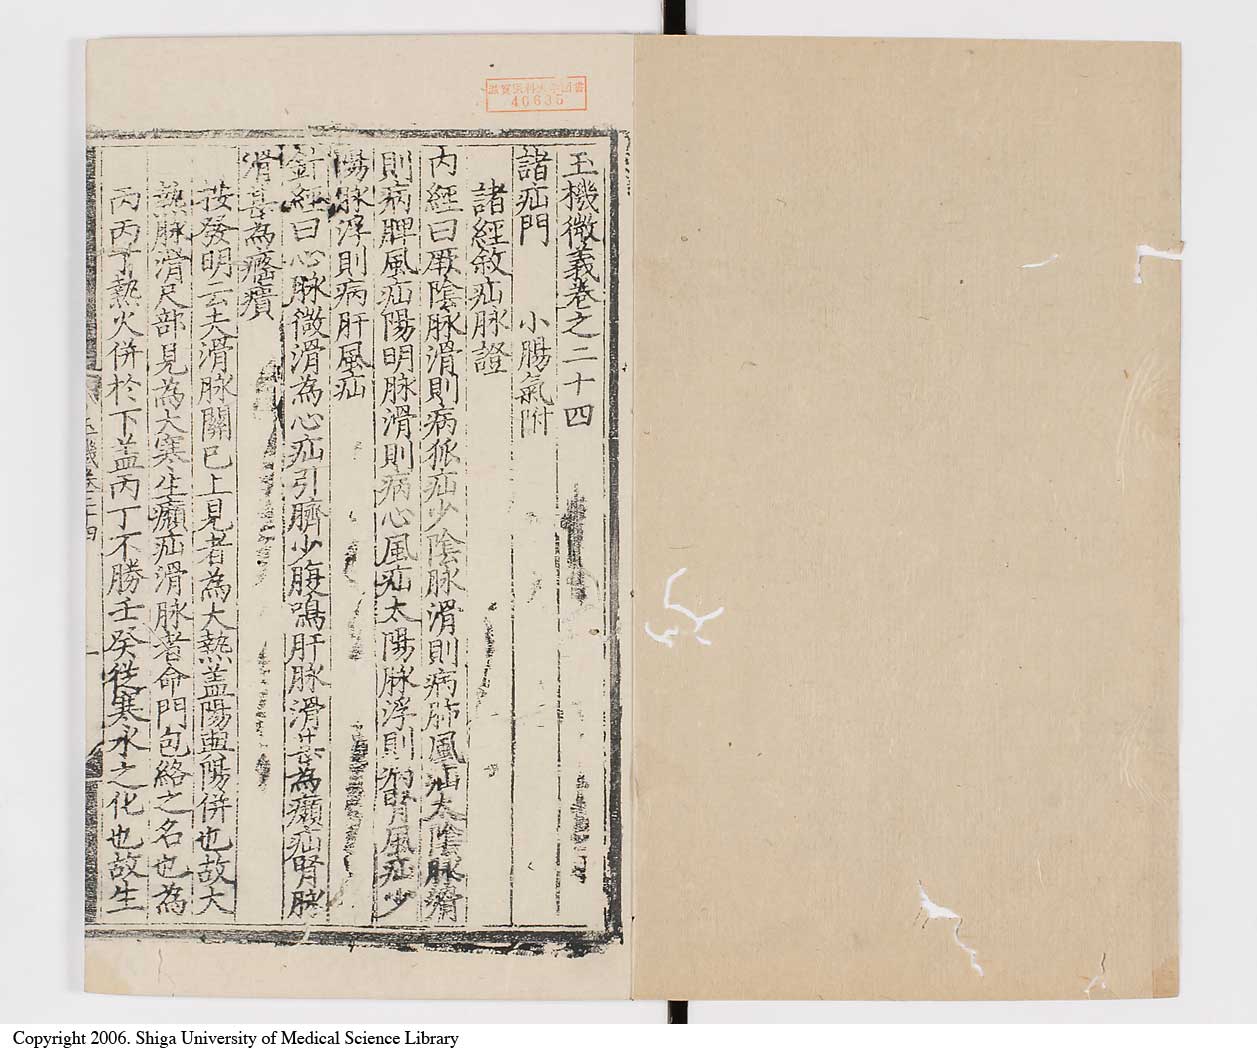 滋賀医科大学図書
40635
玉機微義卷之二十四
諸疝門 小腸氣附
諸經敘疝脉證
內經曰厥陰脉滑則病狐疝少陰脉滑則病肺風疝太陰脉滑
則病脾風疝陽明脉滑則病心風疝太陽脉浮則病腎風疝少
陽脉浮則病肝風疝
針經曰心脉微滑為心疝引臍少腹鳴肝脉滑甚為癩疝腎脉
滑甚為癃㿉
按發明云夫滑脉關已上見者為大熱盖陽與陽併也故大
熱脉滑尺部見為大寒生癩疝滑脉者命門包絡之名也為
丙丙丁熱火併於下盖丙丁不勝壬癸從寒水之化也故生
玉機卷二十四
一
Copyright 2006. Shiga University of Medical Science Library